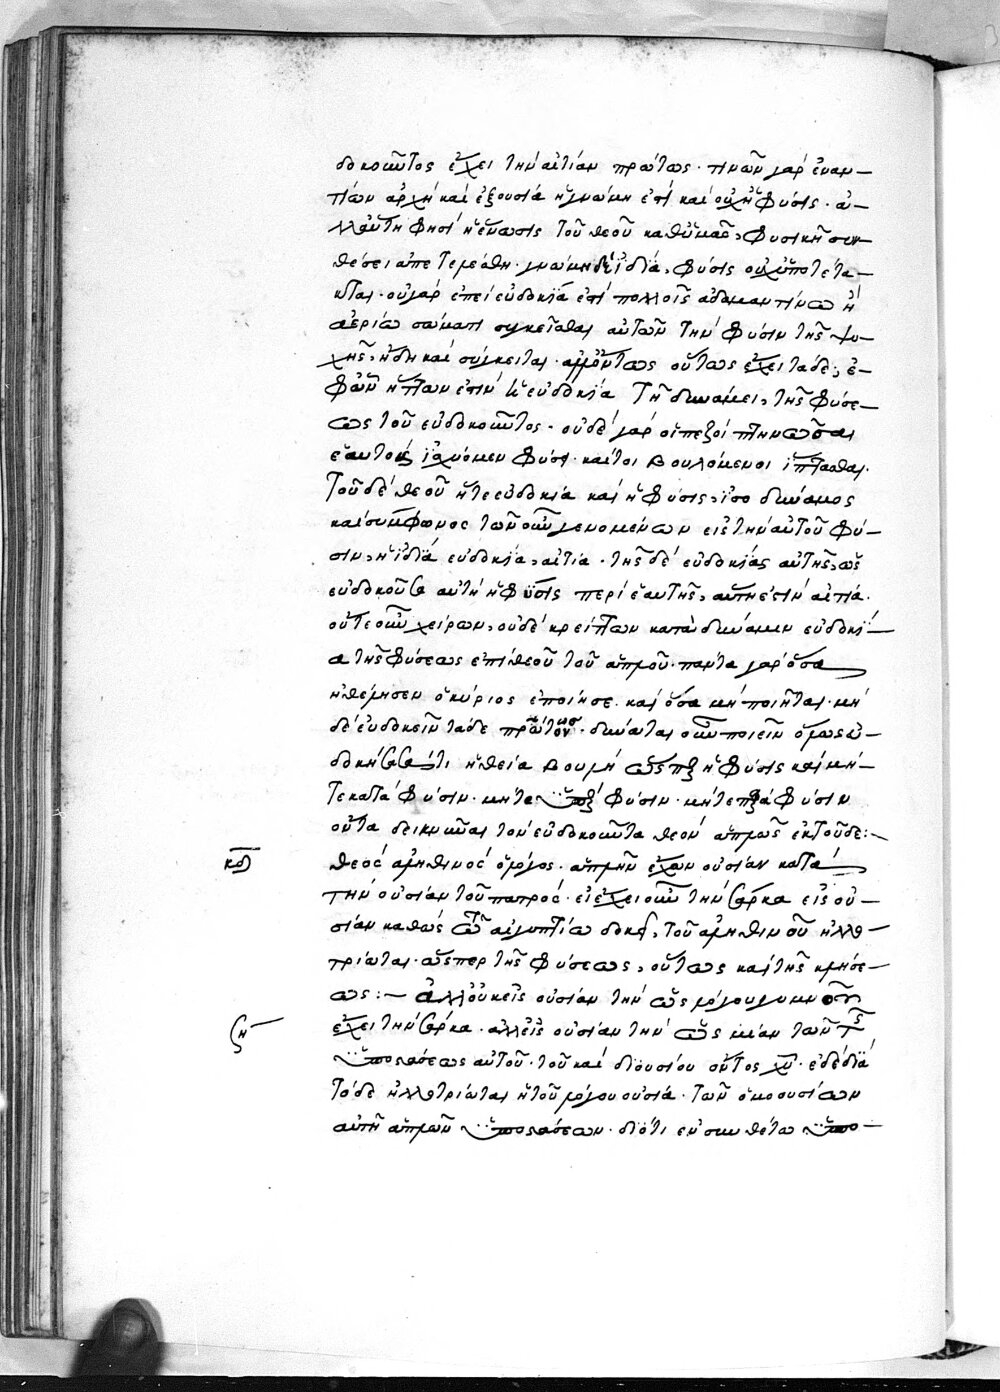 δοκοῦντος ἔχει τὴν αἰτίαν πρώτως· τινῶν γὰρ ἐναν-
τίων ἀρχὴ καὶ ἐξουσία ἡ γνώμη ἐστὶ καὶ οὐχ ἡ φύσις· ἀ-
φησὶ ἡ ἕνωσις τοῦ θεοῦ καθ' ἡμᾶς, φυσικῆ συν
θέσει ἀπετελέσθη· γνώμη δὲ ἰδία, φύσις οὐχ ὑποτέτα-
κται· οὐ γὰρ ἐπεὶ εὐδοκία ἐστὶ πολλοῖς ἀδαμαντίνω ἢ
ἀερίω σώματι συγκεῖσθαι αὐτῶν τὴν φύσιν τῆς ψυ-
χῆς, ἤδη καὶ σύγκειται· ὄντως οὕτως ἔχει τάδε, ἐ-
φ' ὧν ἥττων ἐστὶν ἡ εὐδοκία τῆ δυνάμει, τῆς φύσε-
ως τοῦ εὐδοκοῦντος· οὐδὲ γὰρ οἱ πεζοὶ πτηνῶσαι
ἑαυτοὺς ἰσχύομεν φύσει· καίτοι βουλόμενοι ἵπτασθαι·
τοῦ δὲ θεοῦ ἥ τε εὐδοκία καὶ ἡ φύσις, ἰσοδύναμος
καὶ σύμφωνος τῶν οὖν γενομένων εἰς τὴν αὐτοῦ φύ-
σιν, ἡ ἰδία εὐδοκία, αἰτία· τῆς δὲ εὐδοκίας αὐτῆς, ὡς
εὐδοκοῦσα αὐτὴ ἡ φύσις περὶ ἑαυτῆς, αὕτη ἐστὶν αἰτία·
οὔτε οὖν χείρων, οὐδὲ κρείττων κατὰ δύναμιν εὐδοκί-
α τῆς φύσεως ἐπὶ θεοῦ τοῦ ἁπλοῦ· πάντα γὰρ ὅσα
ἠθέλησεν ὁ κύριος ἐποίησε· καὶ ὅσα μὴ ποιῆται· μὴ
δὲ εὐδοκεῖν τάδε πρῶτον· δύναται οὖν ποιεῖν ὅμως εὐ-
δοκήσασα ὅτι ἡ θεία βουλὴ ὥσπερ ἡ φύσις καὶ μή-
τε κατὰ φύσιν· μήτε ὑπὲρ φύσιν· μήτε παρὰ φύσιν
οὖσα δείκνυται τὸν εὐδοκοῦντα θεὸν ἁπλῶς ἐκ τοῦδε:-
κδ θεὸς ἀληθινὸς ὁ λόγος· ἁπλῆν ἔχων οὐσίαν κατὰ
τὴν οὐσίαν τοῦ πατρός· εἰ ἔχει οὖν τὴν σάρκα εἰς οὐ-
σίαν καθὼς τῶ αἰγυπτίω δοκεῖ, τοῦ ἀληθινοῦ ἠλλο-
τρίωται· ὥσπερ τῆς φύσεως, οὕτως καὶ τῆς κλήσε-
ως:- ἀλλ' οὐκ εἰς οὐσίαν τὴν ὡς λόγου γυμνοῦ
ἔχει τὴν σάρκα· ἀλλ' εἰς οὐσίαν τὴν ὡς μίαν τῶν τῆς
ὑποστάσεως αὐτοῦ· τοῦ καὶ διουσίου ὄντος χῦ· εἰ δὲ διὰ
τόδε ἠλλοτρίωται ἡ τοῦ λόγου οὐσία· τῶν ὁμοουσίων
αὐτῆ ἁπλῶν ὑποστάσεων· διότι ἐν συνθέτω ὑπο-